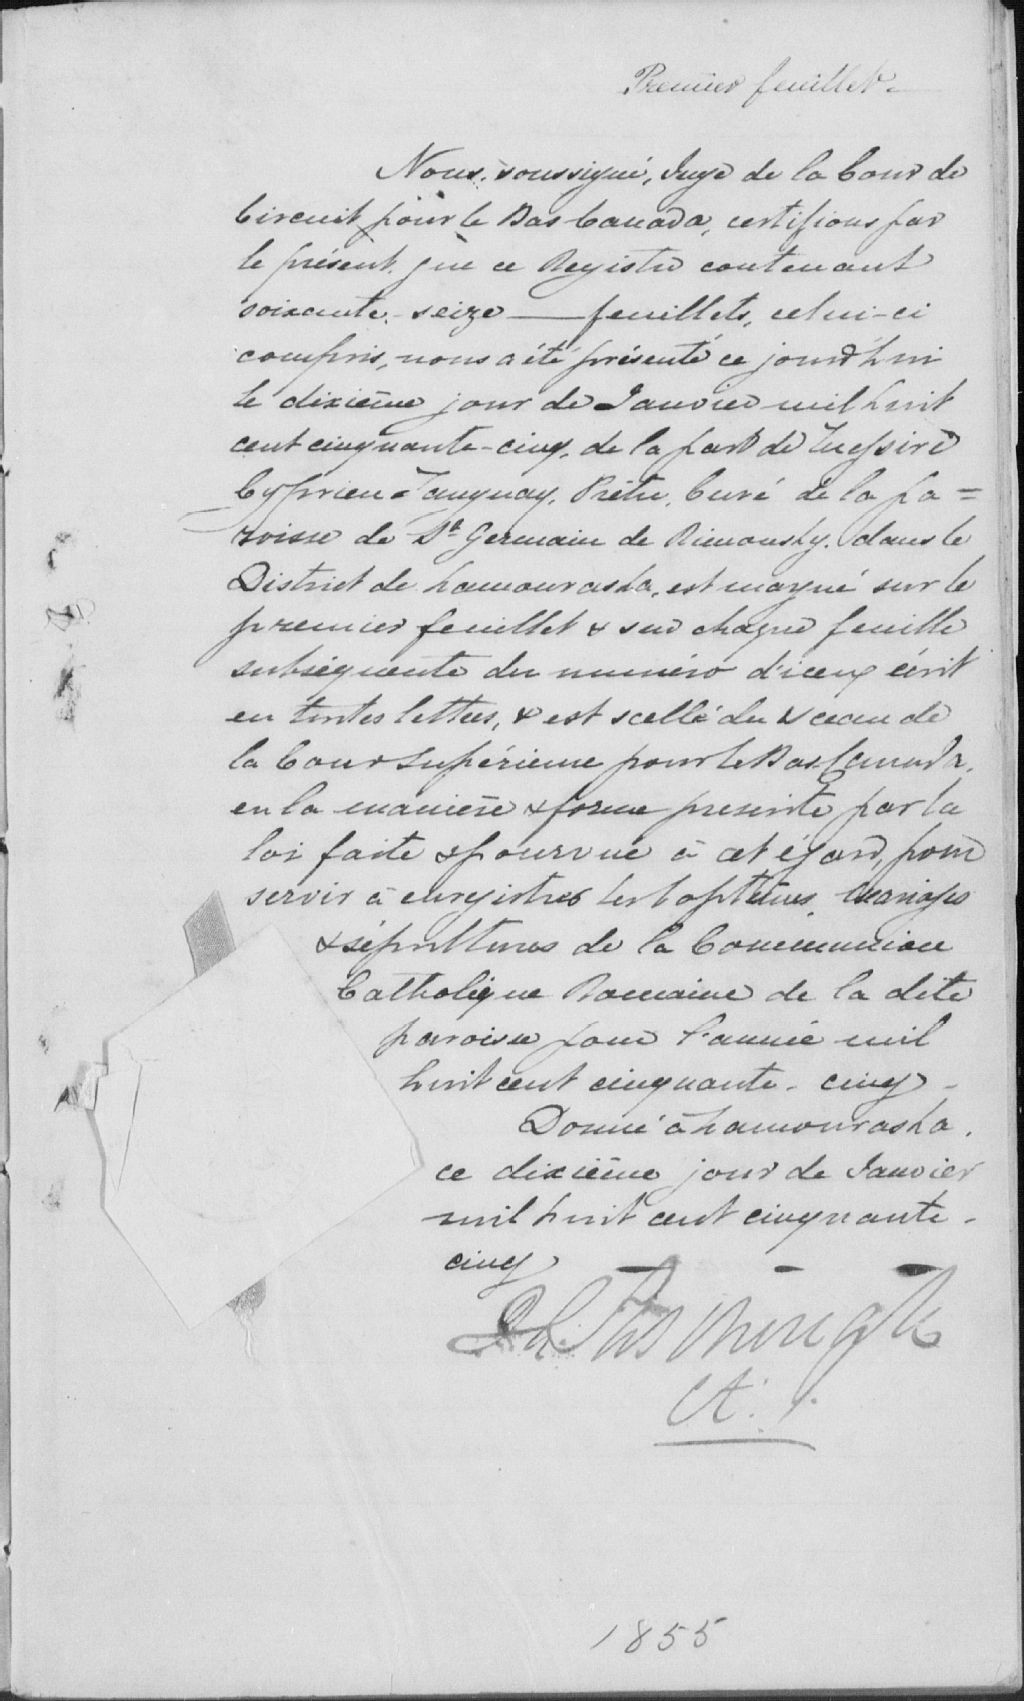 Premier feuillet.
Nous, soussigné, Juge de la Cour de
Circuit pour le Bas Canada, certifions par
le présent que ce Registre contenant
soixante-seize — feuillets, celui-ci
compris, nous a été présenté ce jourd'hui
le dixième jour de Janvier mil huit
cent cinquante-cinq, de la part de Messire
Cyprien Tanguay, Prêtre, Curé de la pa=
roisse de St Germain de Rimousky, dans le
District de Kamouraska, est marqué sur le
premier feuillet & sur chaque feuille
subséquente du numéro d'iceux écrit
en toutes lettres, & est scellé du Sceau de
la Cour Supérieure pour le Bas-Canada,
en la manière & forme prescrite par la
loi faite & pourvue à cet égard, pour
servir à enregistrer les baptêmes, mariages
& sépultures de la Communion
Catholique Romaine de la dite
paroisse pour l'année mil
huit cent cinquante-cinq.
Donné à Kamouraska,
ce dixième jour de Janvier
mil huit cent cinquante-
cinq
1855